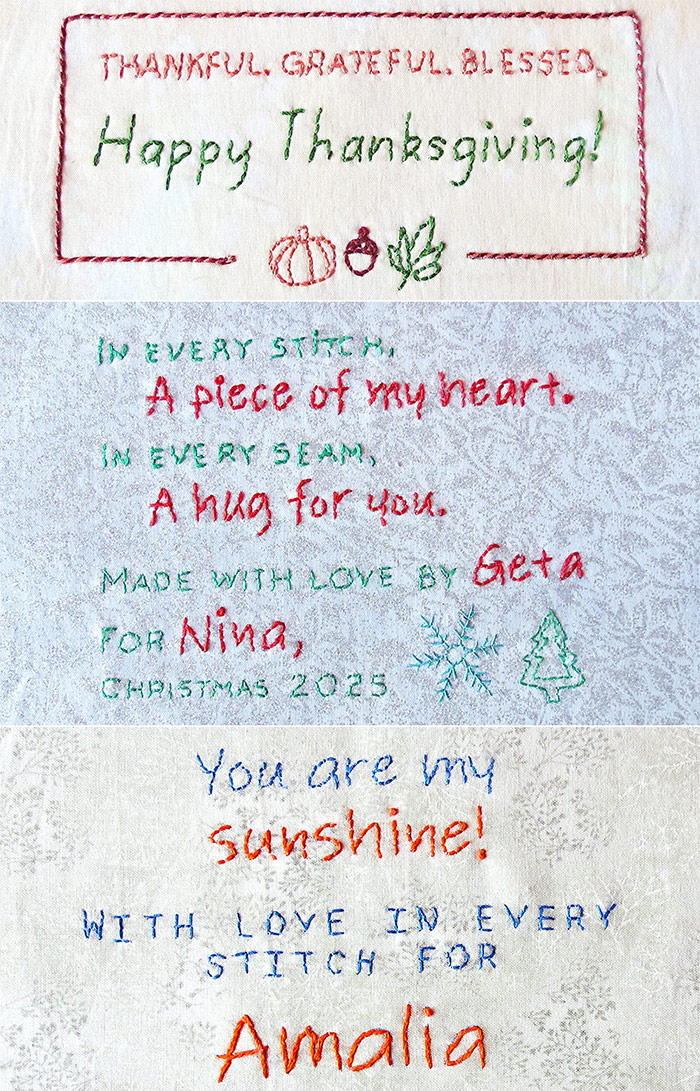 THANKFUL. GRATEFUL. BLESSED.
Happy Thanksgiving!
IN EVERY STITCH,
A piece of my heart.
IN EVERY SEAM,
A hug for you.
MADE WITH LOVE BY Geta
FOR Nina,
CHRISTMAS 2025
You are my
sunshine!
WITH LOVE IN EVERY
STITCH FOR
Amalia